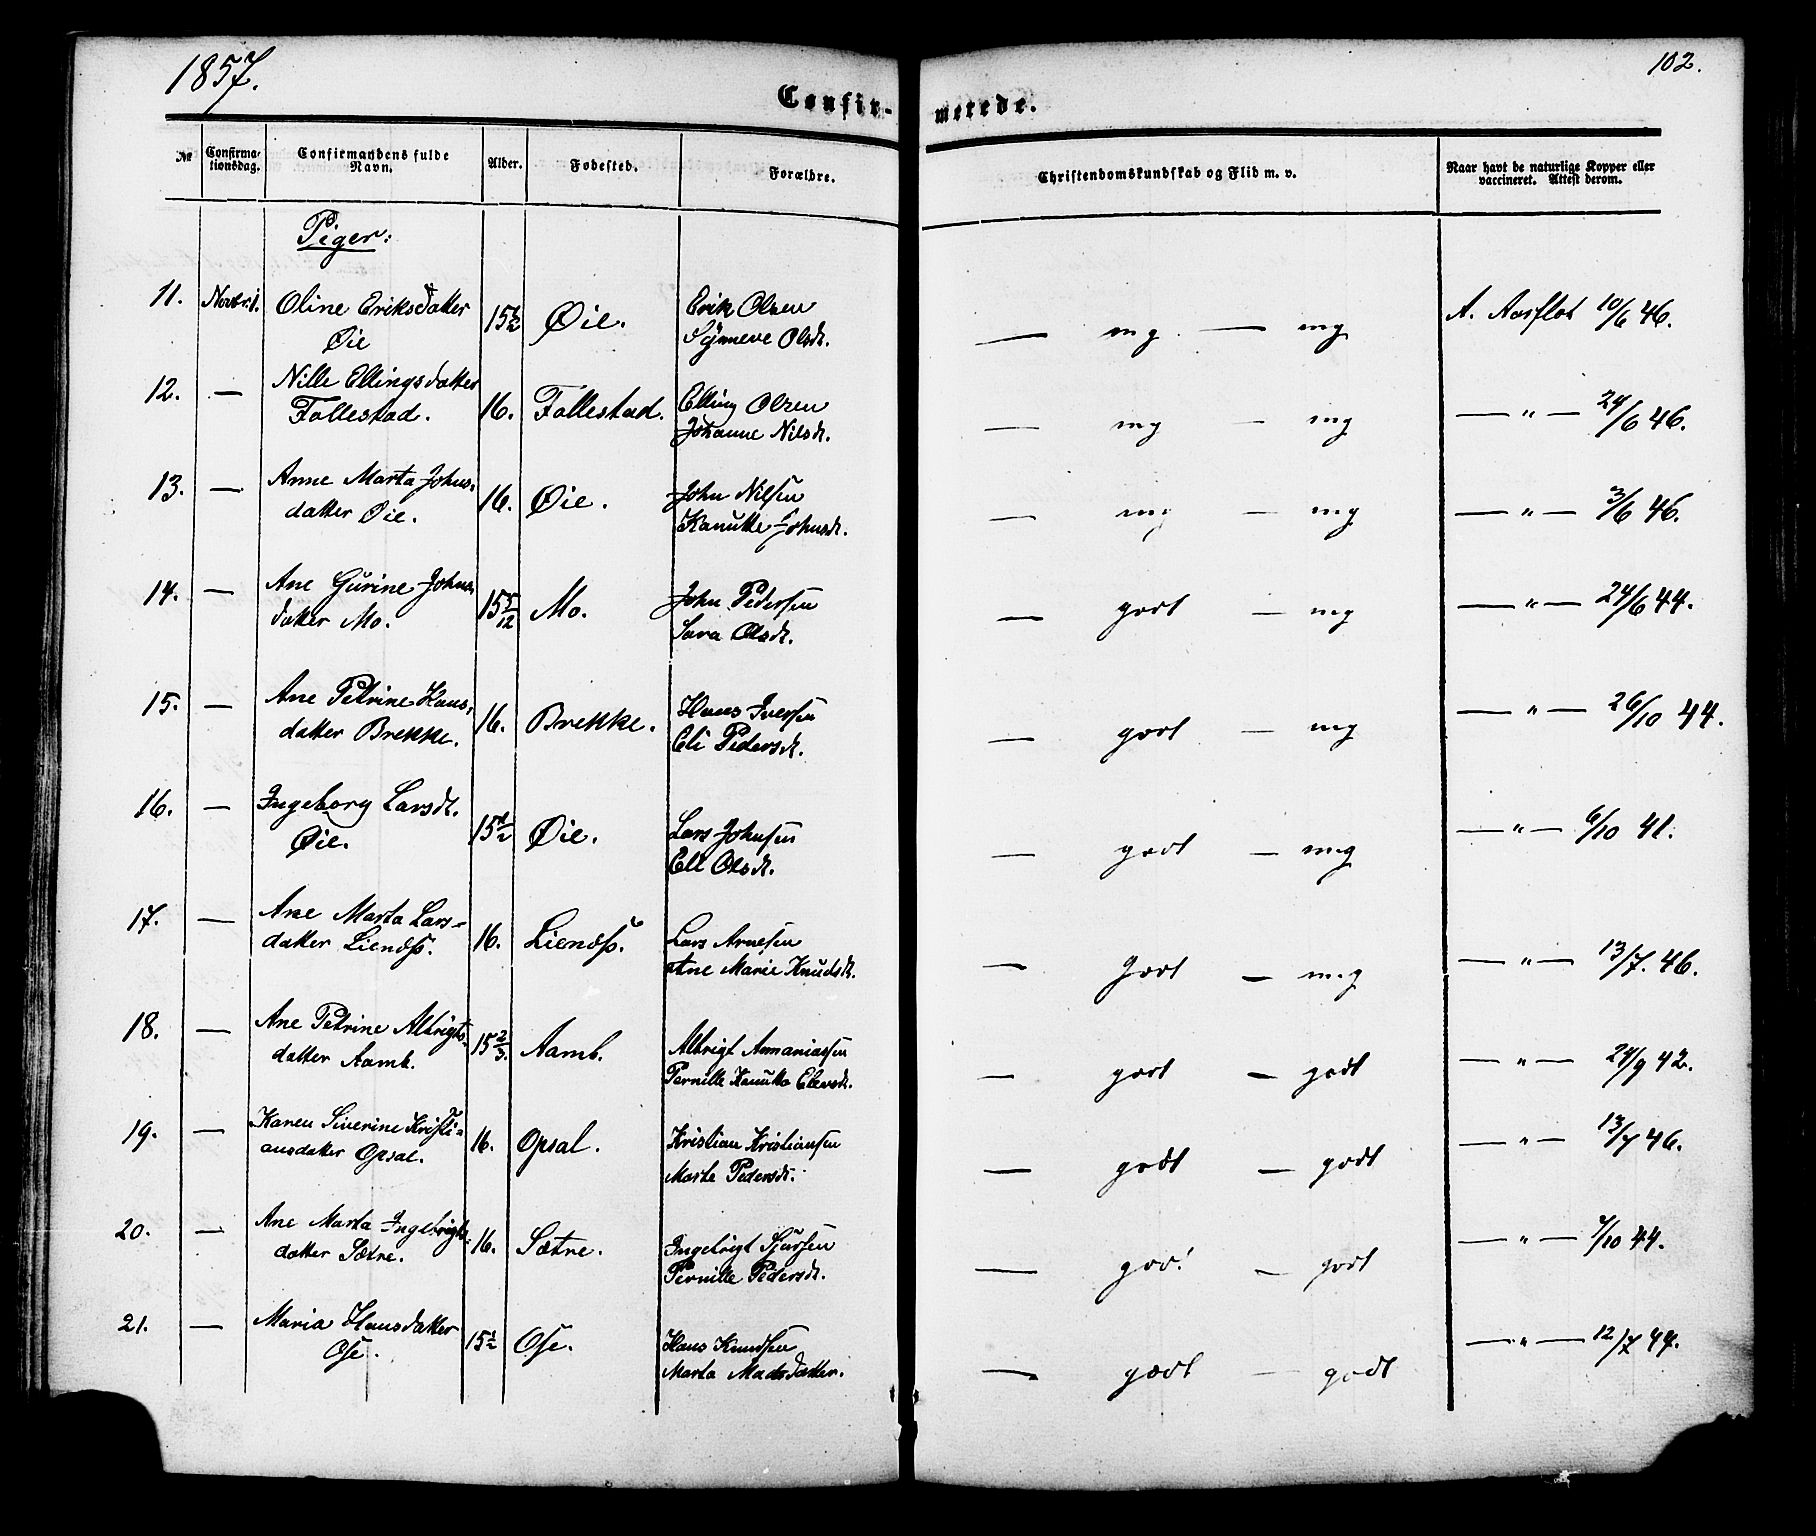 1857.
102.
Confir- merede.
№ Confirma-tionsdag. Confirmandens fulde Navn. Alder. Fødested. Forældre. Christendomskundskab og Flid m. v. Naar havt de naturlige Kopper eller vaccineret. Attest derom.
Piger:
11. Novbr. 1. Oline Eriksdatter 15½ Øie. Erik Olsen — mg — mg A. Aarflot 10/6 46.
Øie Synneve Olsdt.
12. — Nille Ellingsdatter 16. Follestad. Elling Olsen — mg — mg — " — 24/6 46.
Follestad. Johanne Nilsdt.
13. — Anne Marta Johns- 16. Øie. John Nilsen — mg — mg — " — 3/6 46.
datter Øie. Kanutte Johnsdt.
14. — Ane Gurine Johns- 15 5/12 Mo. John Pedersen — godt — mg — " — 24/6 44.
datter Mo. Sara Olsdt.
15. — Ane Petrine Hans- 16. Brekke. Hans Iversen — godt — mg — " — 26/10 44.
datter Brekke. Eli Pedersdt.
16. — Ingeborg Larsdt. 15½ Øie. Lars Johnsen — godt — mg — " — 6/10 41.
Øie. Eli Olsdt.
17. — Ane Marta Lars- 16. Liendss. Lars Arnesen — Godt — mg — " — 13/7. 46.
datter Liendss. Ane Marie Knudsdt.
18. — Ane Petrine Albrigts- 15 2/3. Aamb. Albrigt Annaniassen — godt — godt — " — 24/9 42.
datter Aamb. Pernille Kanutta Elevsdt.
19. — Karen Siverine Kristi- 16. Opsal. Kristian Kristiansen — godt — godt — " — 13/7 46.
ansdatter Opsal. Marte Pedersdt.
20. — Ane Marta Ingebrigts- 16. Sætre. Ingebrigt Sjursen — god! — godt — " — 7/10 44.
datter Sætre. Pernille Pedersdt.
21. — Maria Hansdatter 15½ Ose. Hans Knudsen — godt — godt — " — 12/7 44.
Ose. Marta Madsdatter.